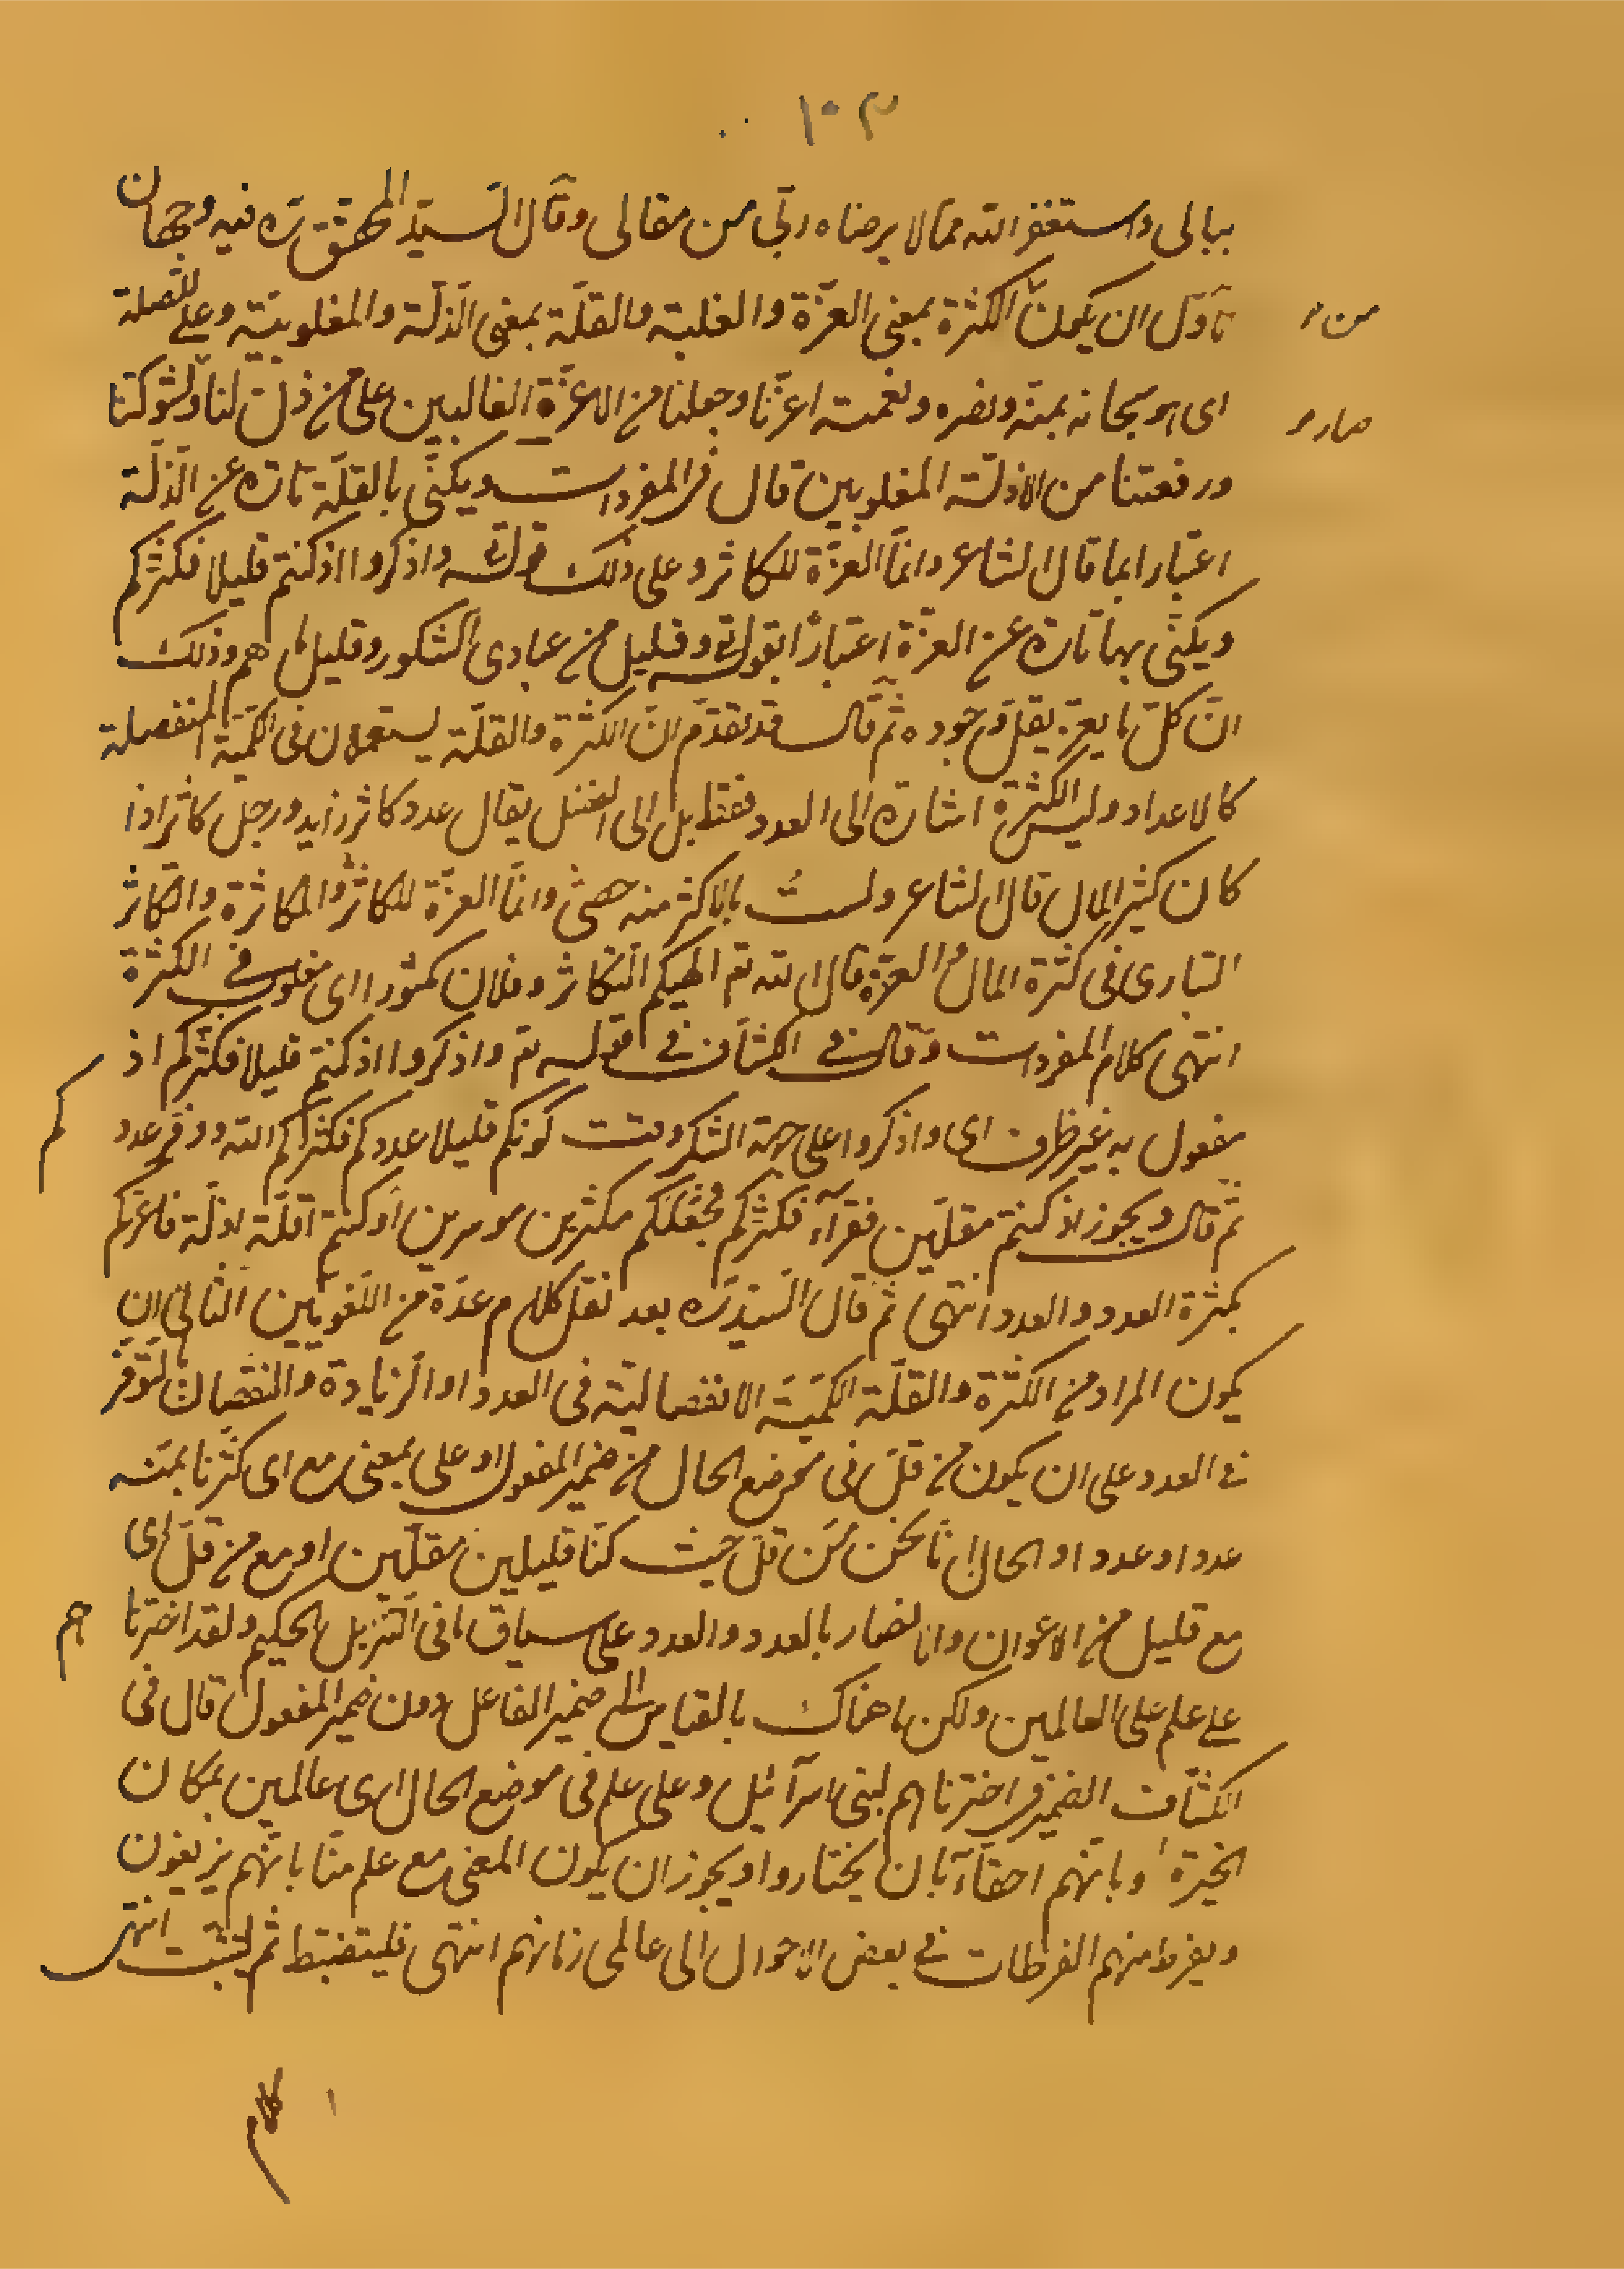 ١٠٣
ببالى واستغفر الله مما لا يرضاه ربّى من مقالى وقال السيّد المحقق ره فيه وجهان
الاوّل ان يكون الكثرة بمعنى العزّة والغلبة والقلّة بمعنى الذلّة والمغلوبيّة وعلى للصلة
من
اى هو سبحانه بمنّه ونصره ونعمته اعزّنا وجعلنا من الاعزّة الغالبين على من ذلّ لنا ولشوكتنا
صار
ورفعتنا من الاذلّة المغلوبين قال فى المفردات ويكنّى بالقلّة تارة عن الذلّة
اعتبارا بما قال الشاعر وانّما العزّة للكاثر وعلى ذلك قوله تع واذكروا اذ كنتم قليلا فكثركم
ويكنّى بها تارة عن العزّة اعتبارًا بقوله تع وقليل من عبادى الشكور وقليل ما هم وذلك
انّ كلّ ما يعزّ يقلّ وجوده ثم قال قد تقدّم انّ الكثرة والقلّة يستعملان فى الكميّة المنفصلة
كالاعداد وليس الكثرة اشارة الى العدد فقط بل الى الفضل يقال عدد كاثر زايد ورجل كاثر اذا
كان كثير المال قال الشاعر ولستُ بالاكثر منه حصى وانّما العزّة للكاثر والمكاثرة والتكاثر
التبارى فى كثرة المال والعزّة قال الله تع الهيكم التكاثر وفلان مكثورا اى مغلوب فى الكثرة
انتهى كلام المفردات وقال فى الكشّاف فى قوله تع واذكروا اذ كنتم قليلا فكثركم اذ
مفعول به غير ظرف اى واذكروا على جهة الشكر وقت كونكم قليلا عددكم فكثركم الله ووفّر عدد
كم
ثم قال ويجوز اذ كنتم مقلّين فقرآء فكثركم فجعلكم مكثرين موسرين او كنتم اقلّة اذلّة فاعزّكم
بكثرة العدد والعدد انتهى ثم قال السيّد ره بعد نقل كلام عدّة من اللغويين الثانى ان
يكون المراد من الكثرة والقلّة الكميّة الانفصاليّة فى العدد او الزيادة والنقصان لتوفّر
فى العدد على ان يكون من قلّ فى موضع الحال من ضمير المفعول او على بمعنى مع اى كثّرنا بمنّه
عددا وعددا والحال انّا نحن ممّن قلّ حيث كنّا قليلين مقلّين او مع من قلّ اى
مع قليل من الاعوان والانصار بالعدد والعدد على سياق ما فى التنزيل الحكيم ولقد اخترنا
هم
على علم على العالمين ولكن ما هناك بالقياس الى ضمير الفاعل دون ضمير المفعول قال فى
الكشّاف الضمير فى اخترناهم لبنى اسرآئيل وعلى علم فى موضع الحال اى عالمين بمكان
الخيرة وبانّهم احقّآء بان يختاروا ويجوز ان يكون المعنى مع علم منّا بانّهم يزيغون
ويفرط منهم الفرطات فى بعض الاحوال الى عالمى زمانهم انتهى فليتضبّط ثم ليتثبّت انتهى
كلام